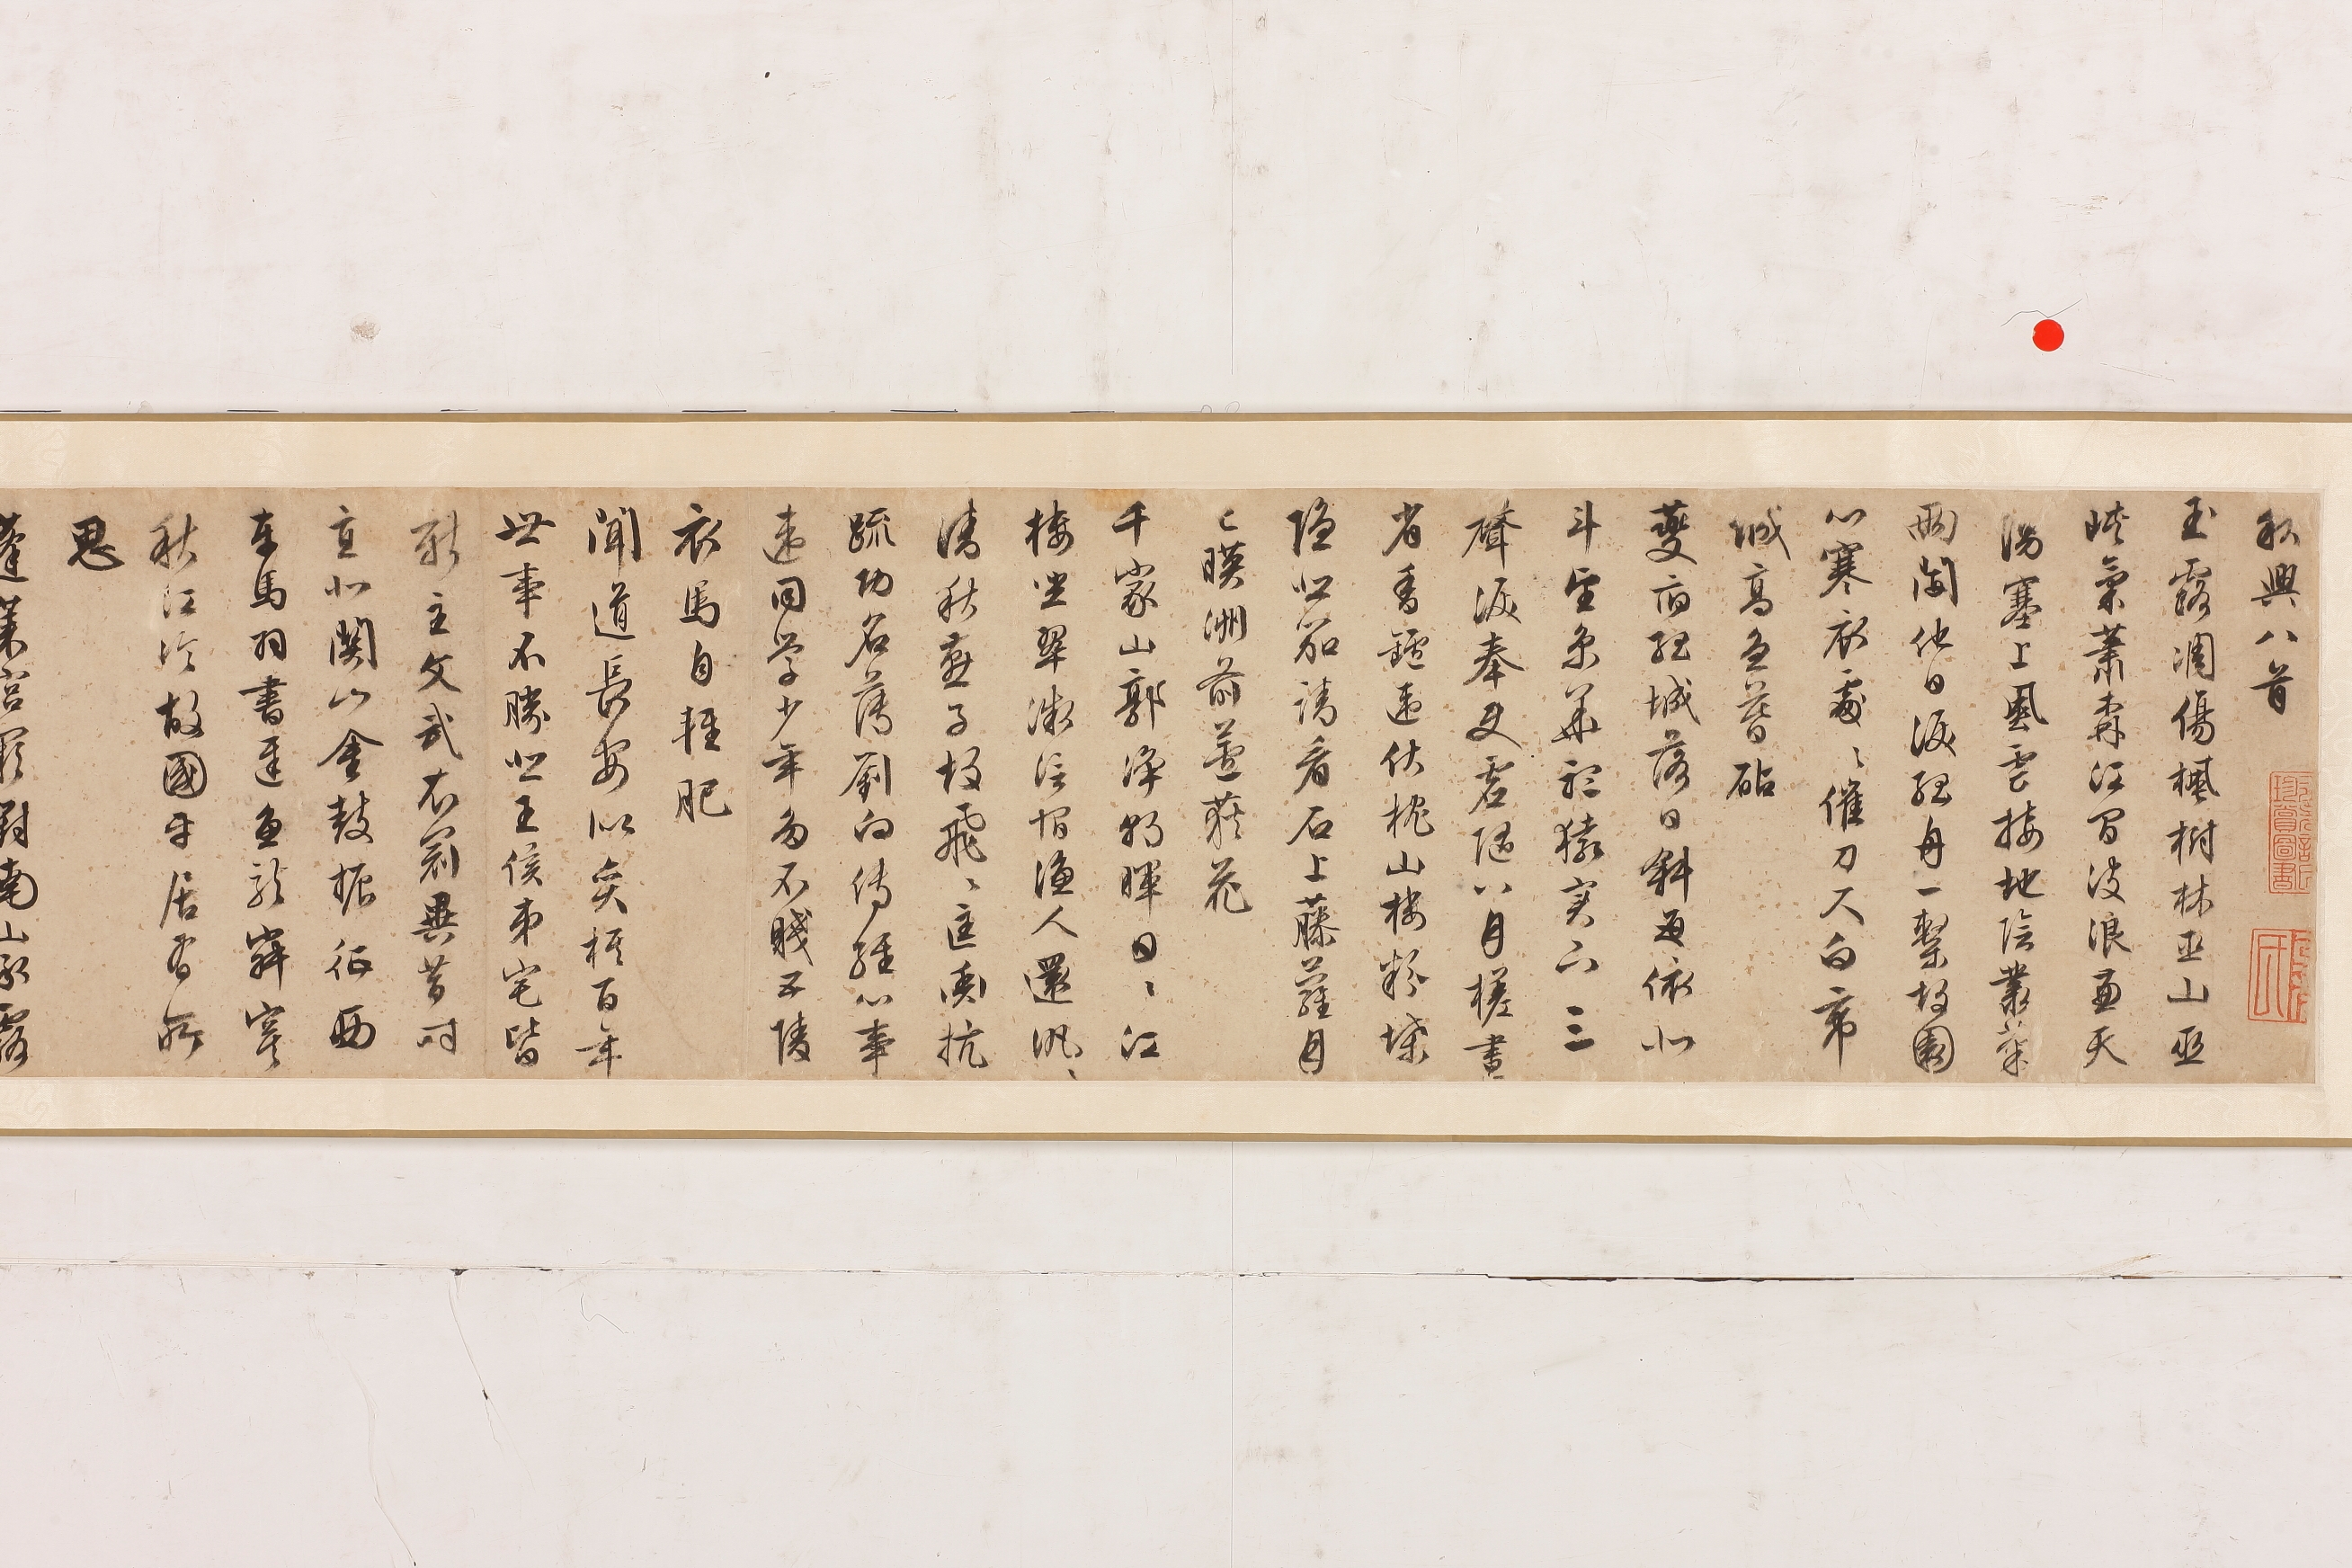 秋興八首
玉露凋傷楓樹林巫山巫
峽氣蕭森江間波浪兼天
湧塞上風雲接地陰叢菊
兩開他日淚孤舟一繫故園
心寒衣處〻催刀尺白帝
城高急暮砧
夔府孤城落日斜每依北
斗望京華聽猿実下三
聲淚奉使虛隨八月槎畫
省香爐違伏枕山樓粉堞
隱悲笳請看石上藤蘿月
已暎洲前蘆荻花
千家山郭淨朝暉日〻江
樓坐翠微信宿漁人還汎〻
清秋燕子故飛〻匡衡抗
疏功名薄劉向傳經心事
違同学少年多不賤五陵
衣馬自輕肥
聞道長安似奕棋百年
世事不勝悲王侯第宅皆
新主文武衣冠異昔時
直北關山金鼓振征西
車馬羽書遲魚龍寂寞
秋江冷故國平居有所
思
蓬萊宮闕對南山承露
珍賞圖書